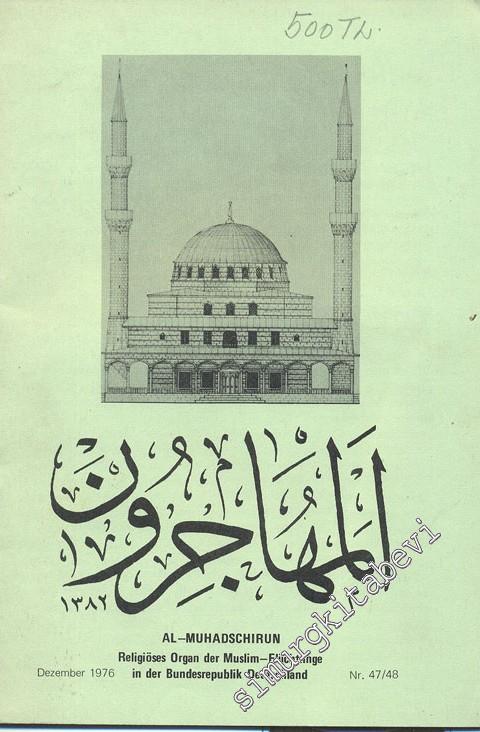 500 TL.
المهاجرون
١٣٨٢
AL-MUHADSCHIRUN
Religiöses Organ der Muslim-Flüchtlinge
in der Bundesrepublik Deutschland
Dezember 1976
Nr. 47/48
simurgkitabevi